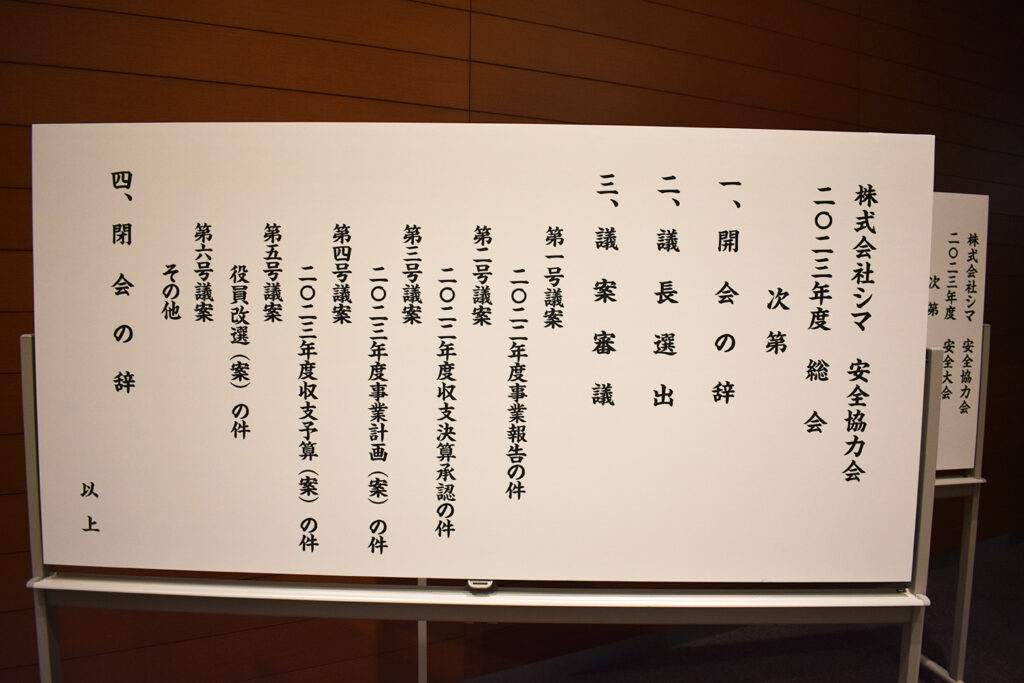 株式会社シマ 安全協力会
二〇二三年度 総会
次第
一、開会の辞
二、議長選出
三、議案審議
第一号議案
二〇二二年度事業報告の件
第二号議案
二〇二二年度収支決算承認の件
第三号議案
二〇二三年度事業計画(案)の件
第四号議案
二〇二三年度収支予算(案)の件
第五号議案
役員改選(案)の件
第六号議案
その他
四、閉会の辞
以上
株式会社シマ 安全協力会
二〇二三年度 安全大会
次第